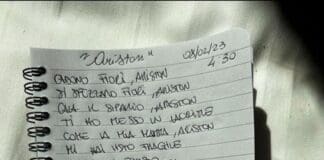 "Ariston"
08/02/23
4:30
CADONO FIORI, ARISTON
SI SPEZZANO FIORI, ARISTON
QUA IL SIPARIO, ARISTON
TI HO MESSO IN LACRIME
COME LA MIA MAMMA, ARISTON
MI HAI VISTO FRAGILE